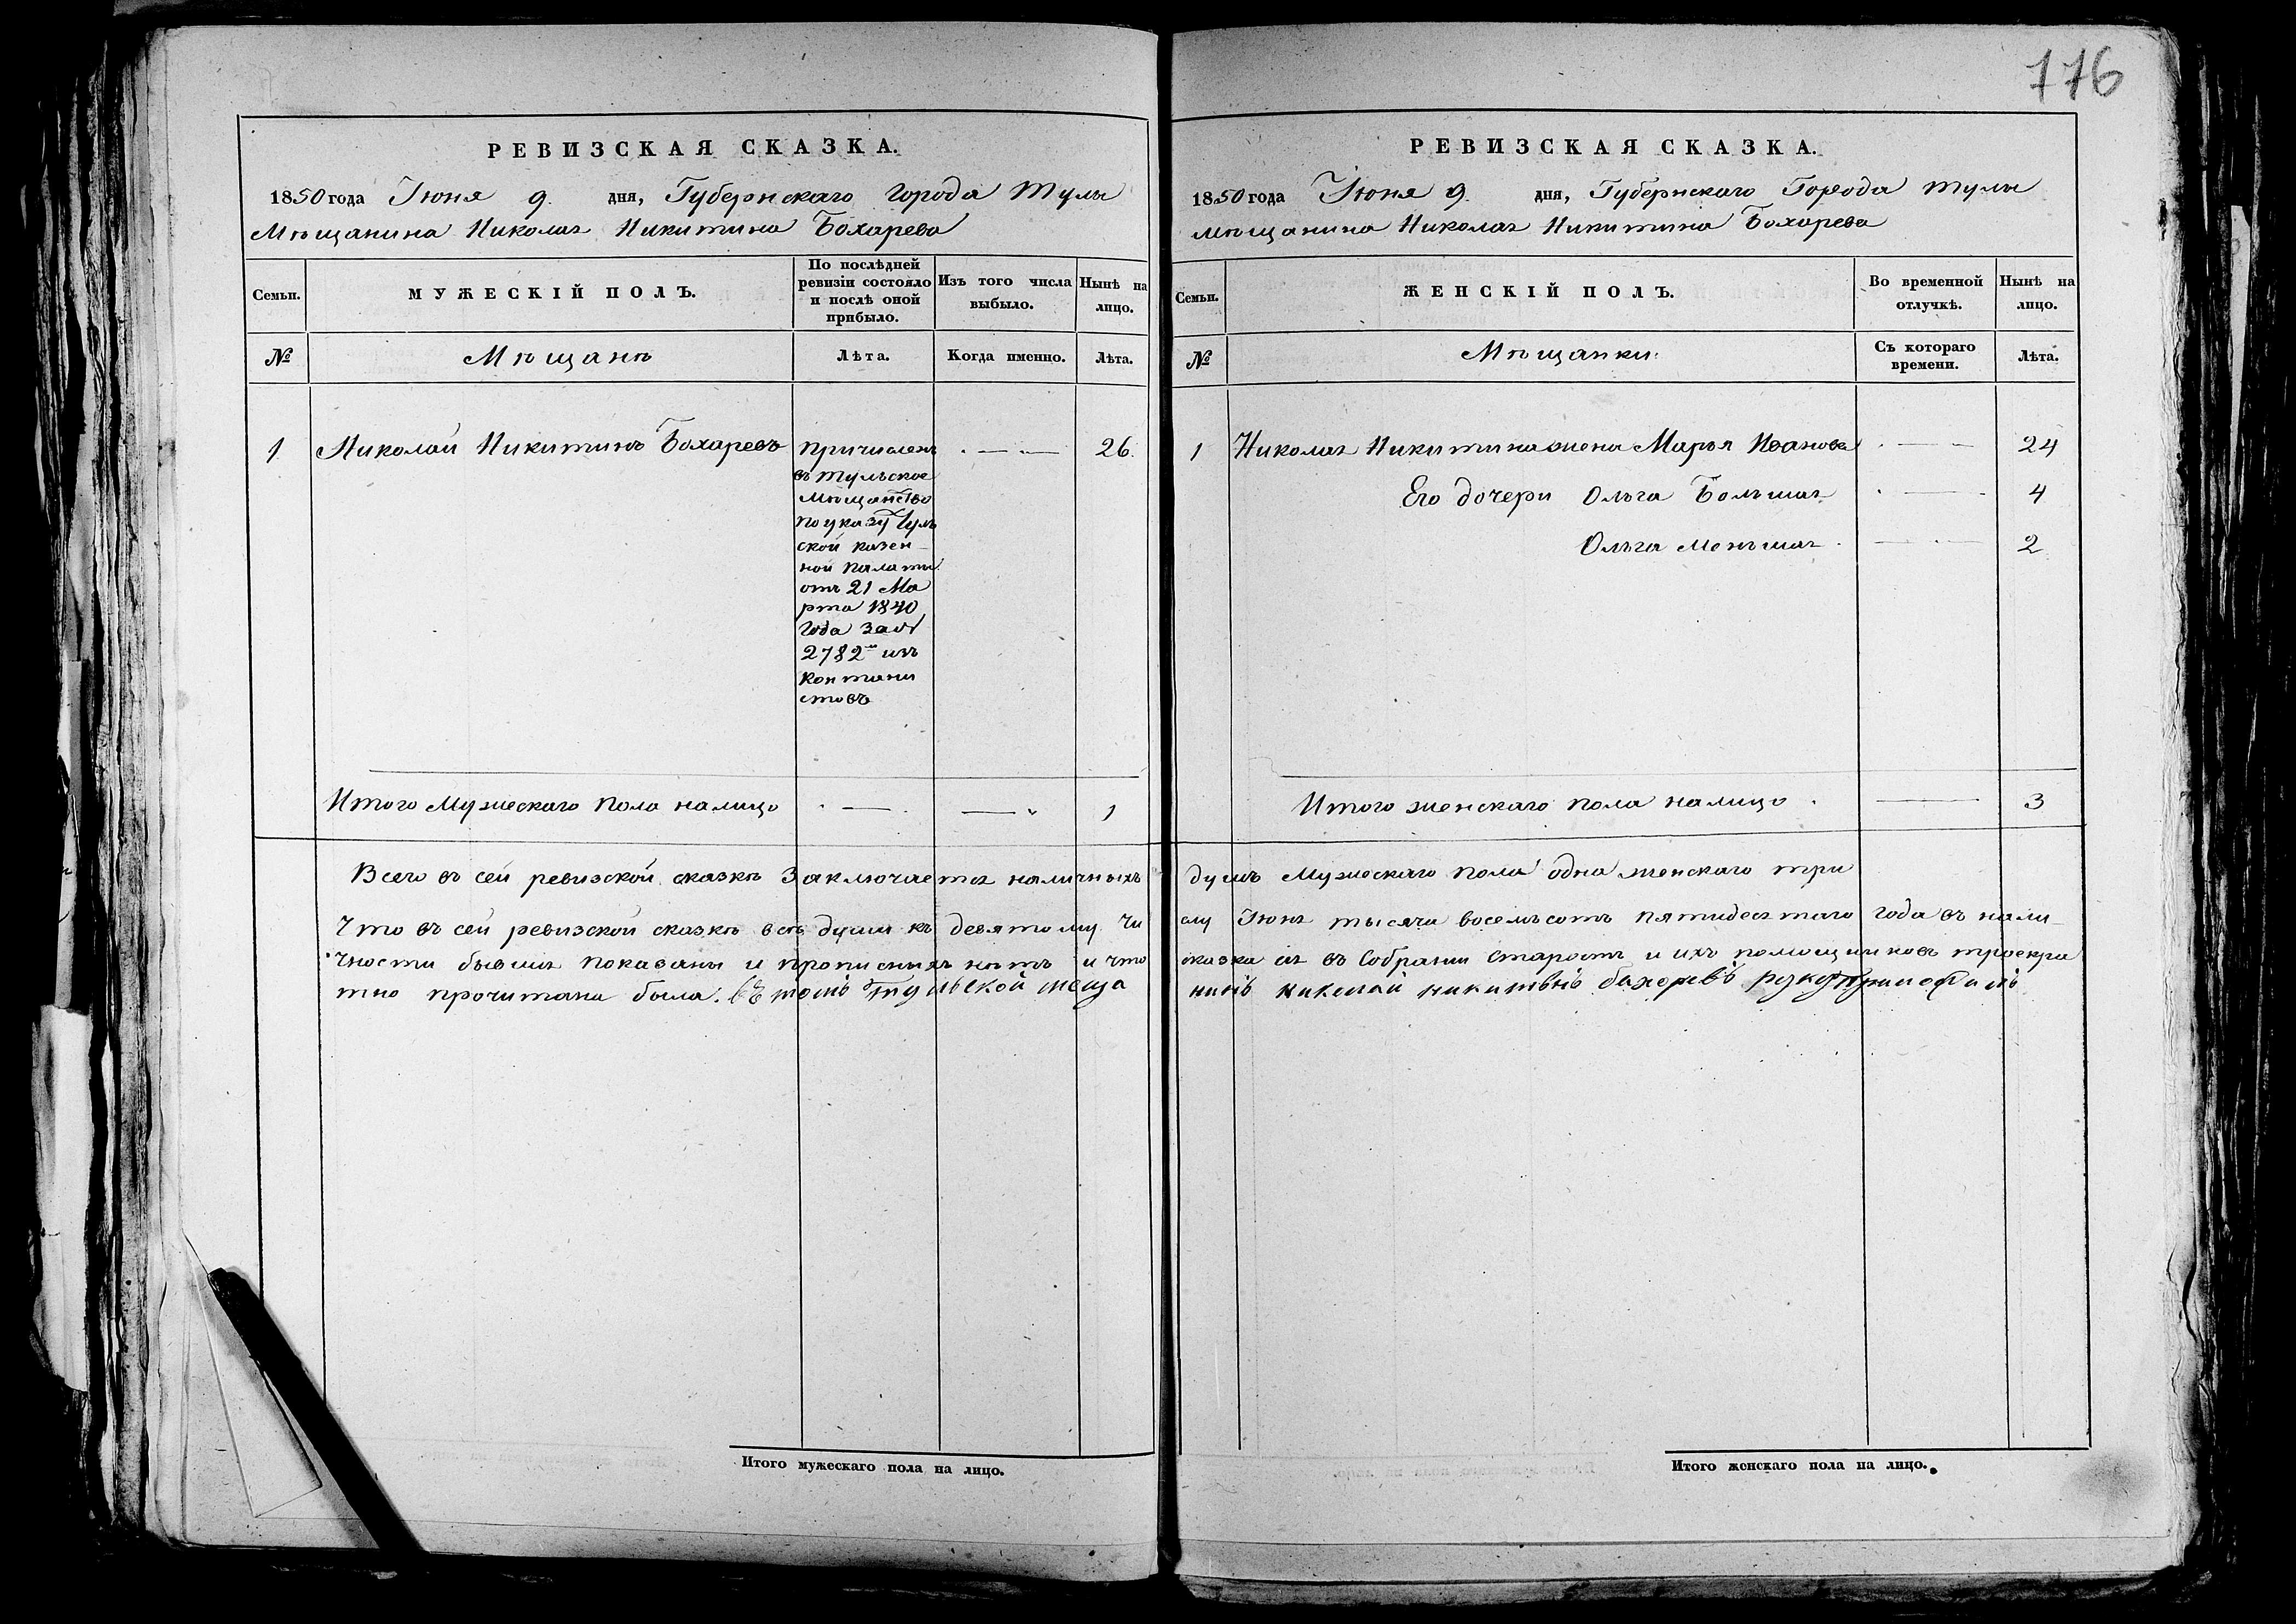 176
РЕВИЗСКАЯ СКАЗКА.
1850 года Іюня 9. дня, Губернскаго города Тулы
Мѣщанина Николая Никитина Бохарева
Семьи.
МУЖЕСКІЙ ПОЛЪ.
По послѣдней
ревизіи состояло
и послѣ оной
прибыло.
Изъ того числа
выбыло.
Нынѣ на
лицо.
№
Мѣщане
Лѣта.
Когда именно.
Лѣта.
1
Николай Никитинъ Бохаревъ
26.
причисленъ
въ тульское
мѣщанство
по указу Туль
ской казен-
ной палаты
отъ 21 Ма
рта 1840
года за №
2782м изъ
контони
стовъ
Итого Мужескаго пола налицо
1
РЕВИЗСКАЯ СКАЗКА.
1850 года Іюня 9. дня, Губернскаго Города Тулы
мѣщанина Николая Никитина Бохарева
Семьи.
ЖЕНСКІЙ ПОЛЪ.
Во временной
отлучкѣ.
Нынѣ на
лицо.
№
Мѣщанки.
Съ котораго
времени.
Лѣта.
1
Николая Никитина жена Марья Иванова
24
Его дочери Ольга Большая
4
Ольга Меньшая
2
Итого женскаго пола налицо.
3
Всего въ сей ревизской сказкѣ Заключается наличныхъ душъ Мужескаго пола одна женскаго три
Что въ сей ревизской сказкѣ всѣ души къ девятому чи слу Іюня тысяча восемьсотъ пятидесятаго года въ нали-
чности бывшія показаны и прописныхъ нѣтъ и что сказка сія въ Собраніи старостъ и ихъ помощниковъ троекра
тно прочитана была. Въ томъ Тулской меща нинъ николай никитинъ бахоревъ руку приложилъ
Итого мужескаго пола на лицо.
Итого женскаго пола на лицо.